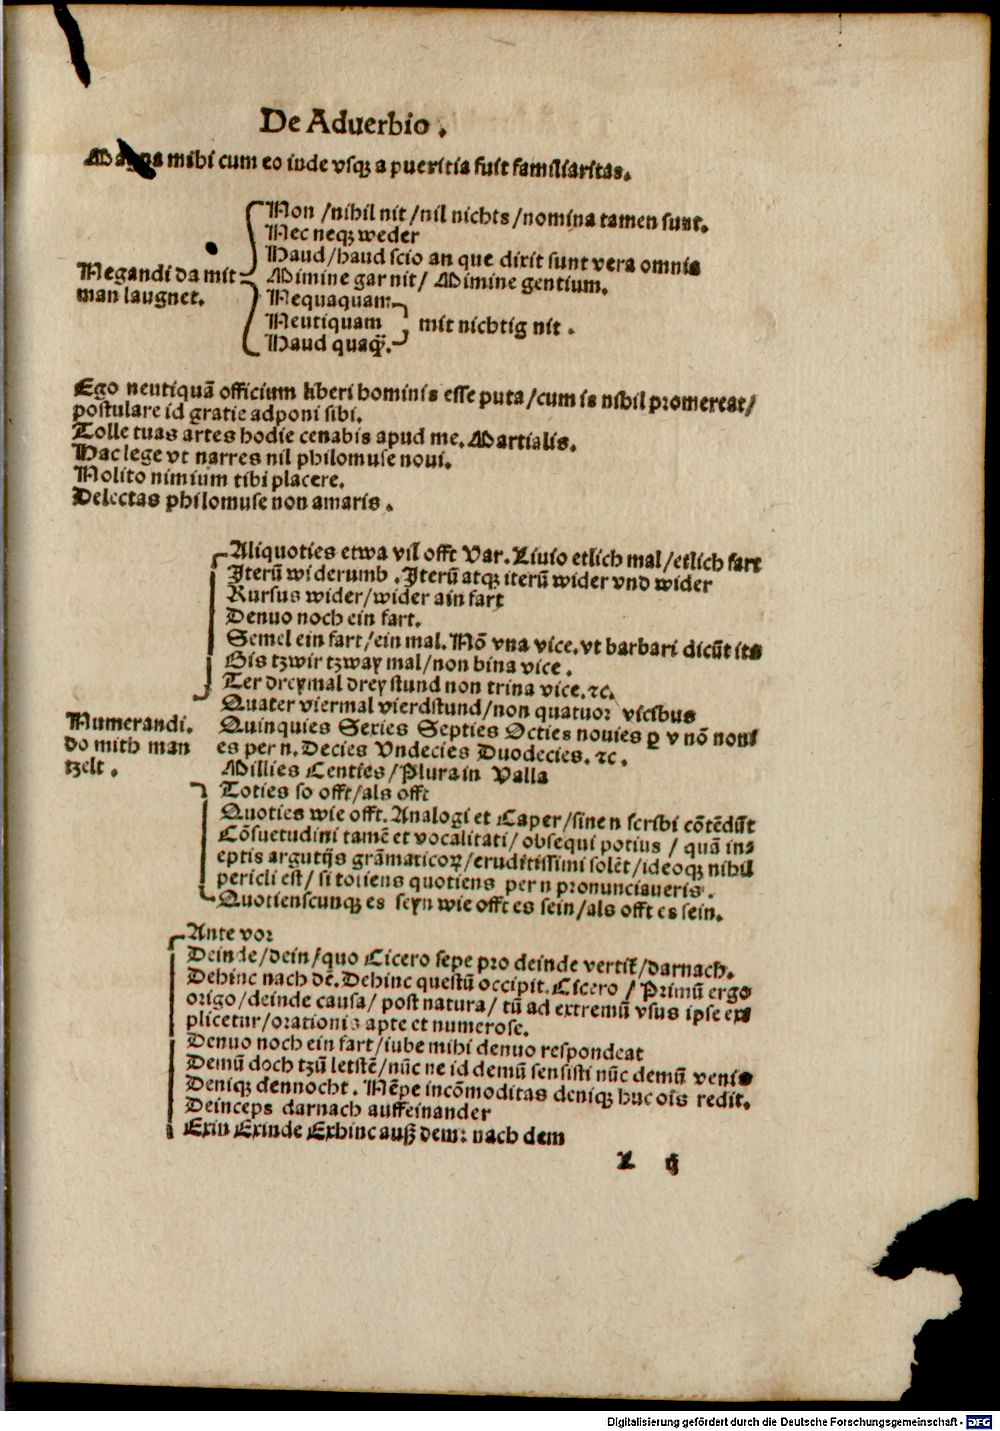 De Aduerbio.
Magna mihi cum eo inde vsqꝫ a pueritia fuit familiaritas.
Non /nihil nit/nil nichts/nomina tamen sunt.
Nec neqꝫ weder
Haud/haud scio an que dixit sunt vera omnia
Negandi da mit
man laugnet.
Mimine gar nit/ Mimine gentium.
Nequaquam
Neutiquam mit nichtig nit.
Haud quaqꝫ̃.
Ego neutiquã officium liberi hominis esse puta/cum is nihil promereat/
postulare id gratie adponi sibi.
Tolle tuas artes hodie cenabis apud me. Martialis.
Hac lege vt narres nil philomuse noui.
Nolito nimium tibi placere.
Delectas philomuse non amaris.
Aliquoties etwa vil offt Var. Liuio etlich mal/etlich fart
Iterũ widerumb. Iterũ atqꝫ iterũ wider vnd wider
Rursus wider/wider ain fart
Denuo noch ein fart.
Semel ein fart/ein mal. Nõ vna vice. vt barbari dicũt ita
Bis tzwir tzway mal/non bina vice.
Ter dreymal drey stund non trina vice. ⁊c.
Quater viermal vierdstund/non quatuor vicibus
Numerandi.
do mith man
tzelt.
Quinquies Sexies Septies Octies nouies ꝑ v nõ noni
es per n. Decies Vndecies Duodecies. ⁊c.
Millies Centies/Plura in Valla
Toties so offt/als offt
Quoties wie offt. Analogi et Caper/sine n scribi cõtẽdũt
Cõsuetudini tamẽ et vocalitati/ obsequi potius / quã ine
eptis argutijs grãmaticoꝝ/eruditissimi solẽt/ideoqꝫ nihil
pericli est/ si totiens quotiens per n pronunciaueris.
Quotienscunqꝫ es seyn wie offt es sein/als offt es sein.
Ante vor
Deinde/dein/quo Cicero sepe pro deinde vertit̃/darnach.
Dehinc nach dẽ. Dehinc questũ occipit. Cicero / Primũ ergo
origo/deinde causa/ post natura/ tũ ad extremũ vsus ipse ex
plicetur/orationis apte et numerose.
Denuo noch ein fart/iube mihi denuo respondeat
Demũ doch tzũ letstẽ/nũc ne id demũ sensisti nũc demũ venis
Deniqꝫ dennocht. Nẽpe incõmoditas deniqꝫ huc oĩs redit.
Deinceps darnach auffeinander
Exin Exinde Exhinc auß dem: nach dem
L ij
Digitalisierung gefördert durch die Deutsche Forschungsgemeinschaft - DFG